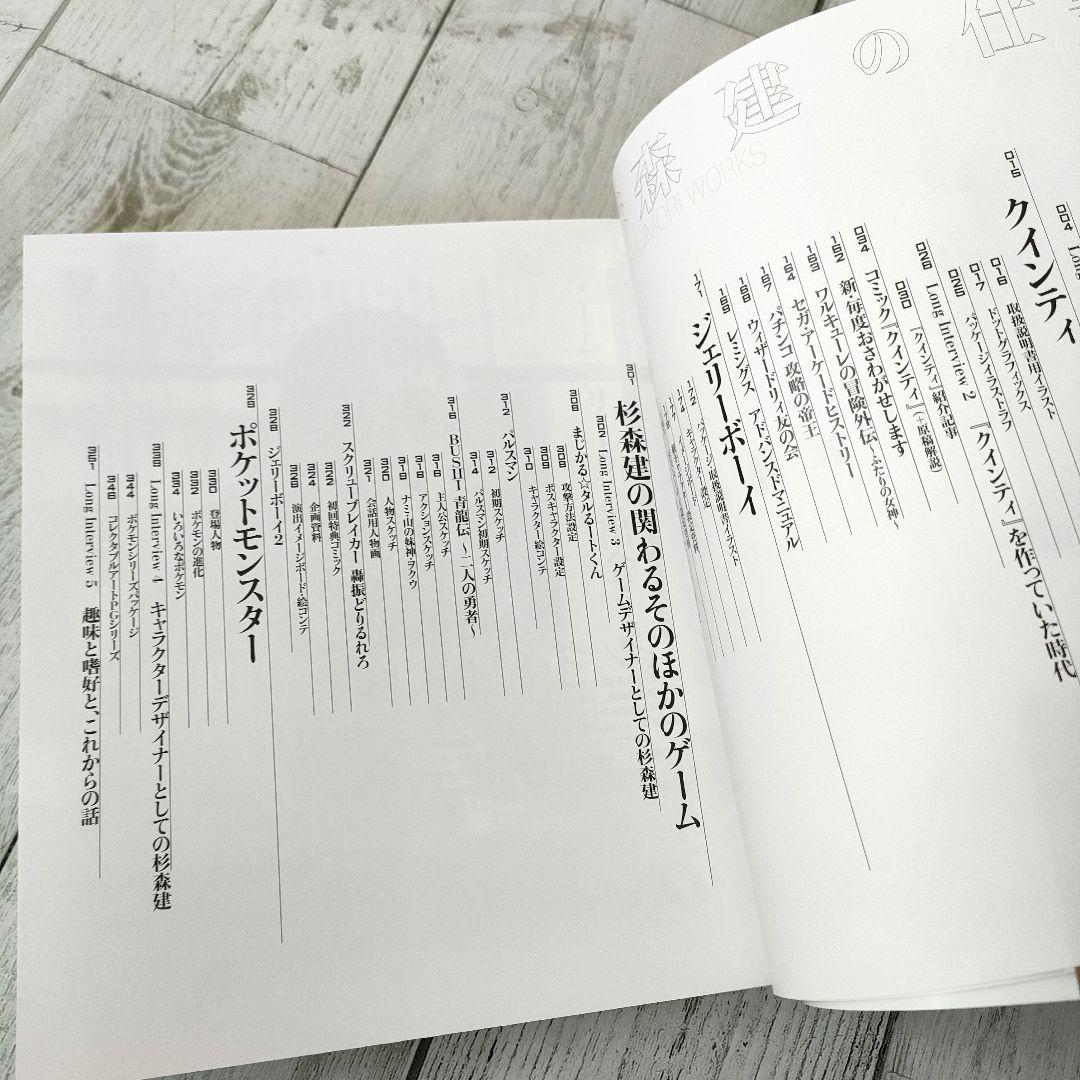 森建の仕
WORKS
004 Long
015 クインティ
016 取扱説明書用イラスト
017 ドットグラフィックス
026 パッケージイラストラフ
028 Long Interview 2 『クインティ』を作っていた時代
030 『クインティ』紹介記事
034 コミック『クインティ』(+原稿解説)
162 新・毎度おさわがせします
163 ワルキューレの冒険外伝 ふたりの女神
164 セガ・アーケードヒストリー
167 パチンコ攻略の帝王
168 ウィザードリィ友の会
169 レミングス アドバンスドマニュアル
171 ジェリーボーイ
172 パッケージ、取扱説明書イラスト
174
301 杉森建の関わるそのほかのゲーム
302 Long Interview 3 ゲームデザイナーとしての杉森建
308 まじかる☆タルるートくん
308 攻撃方法設定
309 ボスキャラクター設定
310 キャラクター絵コンテ
312 パルスマン
312 初期スケッチ
314 パルスマン初期スケッチ
316 BUSHI 青龍伝 〜二人の勇者〜
316 主人公スケッチ
318 アクションスケッチ
319 ナミ山の妹神・ヲクウ
320 人物スケッチ
321 会話用人物画
322 スクリューブレイカー 轟振どりるれろ
322 初回特典コミック
324 企画資料
326 演出イメージボード・絵コンテ
328 ジェリーボーイ2
329 ポケットモンスター
330 登場人物
332 ポケモンの進化
334 いろいろなポケモン
338 Long Interview 4 キャラクターデザイナーとしての杉森建
344 ポケモンシリーズパッケージ
346 コレクタブルアートPGシリーズ
351 Long Interview 5 趣味と嗜好と、これからの話